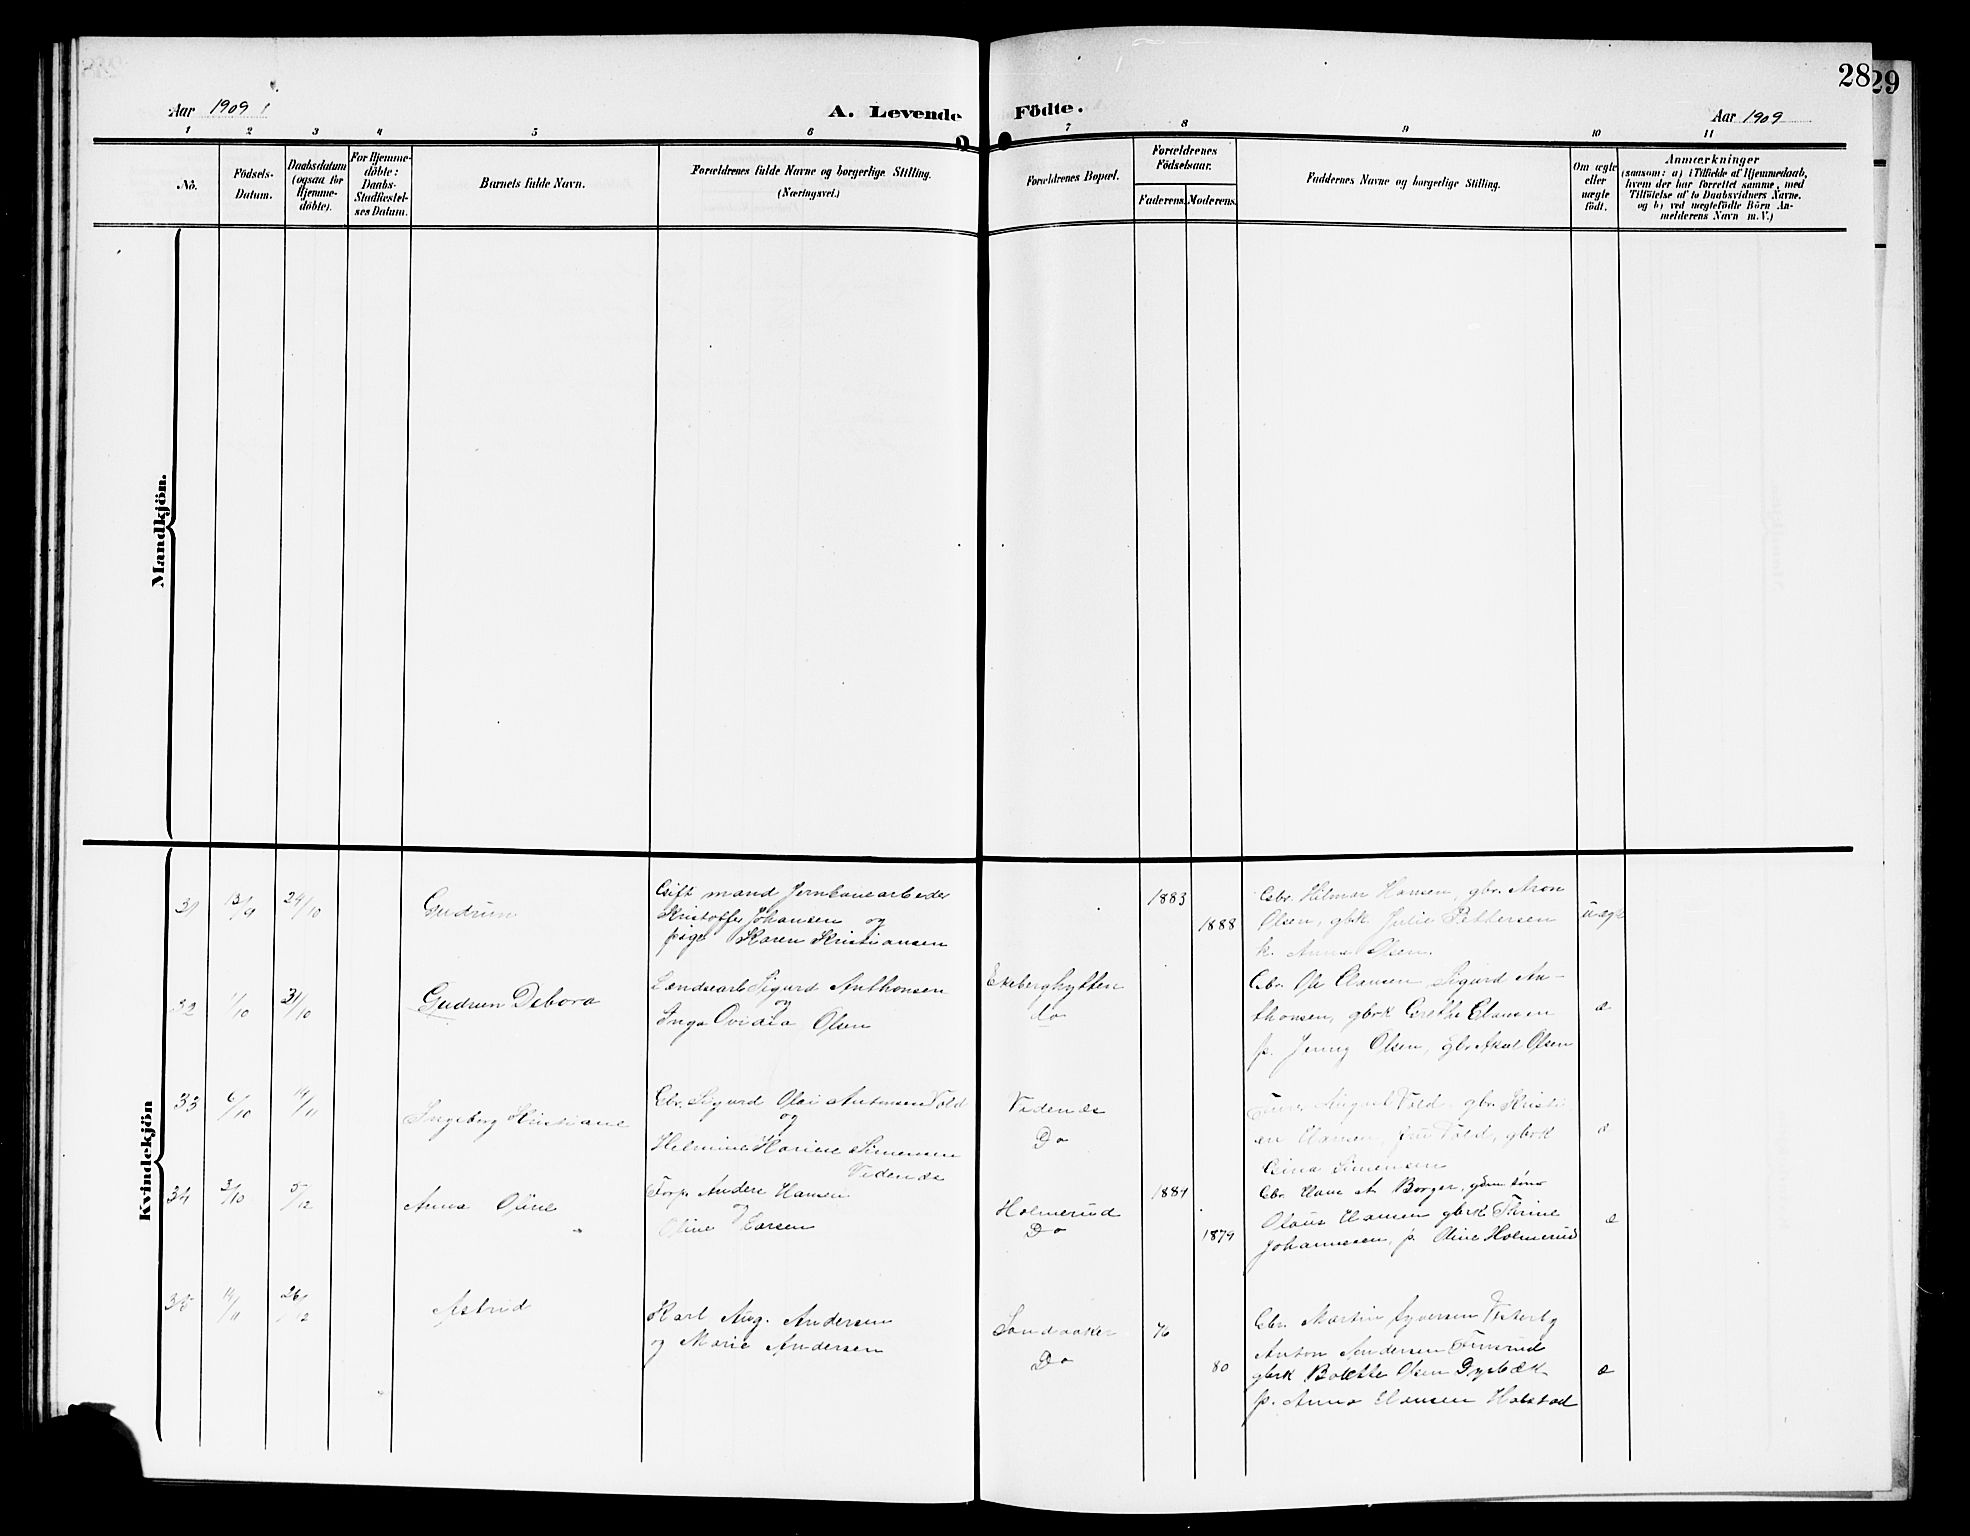 28
29
Aar 1909
A. Levende Födte.
Aar 1909
1 2 3 4 5 6 7 8 9 10 11
No.
Födsels-Datum.
Daabsdatum (ogsaa for Hjemme-döbte).
For Hjemme-döbte: Daabs-Stadfæstel-ses Datum.
Barnets fulde Navn.
Forældrenes fulde Navne og borgerlige Stilling.
(Næringsvei.)
Forældrenes Bopæl.
Forældrenes Födselsaar.
Faderens. Moderens.
Faddernes Navne og borgerlige Stilling.
Om ægte eller uægte födt.
Anmærkninger
(saasom: a) i Tilfælde af Hjemmedaab,
hvem der har forrettet samme, med
Tilföielse af to Daabsvidners Navne.
og b) ved uægtefödte Börn An-
melderens Navn m. V.)
Mandkjön.
Kvindekjön
31 13/9 24/10 Gudrun
Gift mand Jernbanearbeder
Kristoffer Johansen og
pige Karen Kristiansen
1883
1888
Gbr. Hilmar Hansen, gbr. Aron
Olsen, gbk Julie Pettersen
k. Anna Olsen.
uægte
32 1/10 31/10 Gudrun Debora
Landsarb Sigurd Anthonsen
og
Inga Ovidia Olsen
Ekeberghytten
do
Gbr. Ole Clausen, Sigurd An-
thonsen, gbrk Grethe Clausen
p. Jenny Olsen, gbr Aksel Olsen
æ
33 6/10 14/11 Ingeborg Kristiane
Gbr. Sigurd Olai Antonsen Vold
og
Helmine Marie Simensen
Vedende
Do
August Vold, gbr. Kristi
an Hansen, Vold, gbrk
Simensen
æ
34 3/10 5/12 Anna Oline
Torp. Anders Hansen
og
Oline Larsen
Holmerud
Do
1884
1879
Gbr. Hans A Borger,
Olaus Hansen gbrk Thrine
Johannesen, p. Oline Holmerud
æ
35 14/11 26/12 Astrid
Karl Aug. Andersen
og Marie Andersen
Sandaaker
Do
76
80
Gbr. Martin Syversen Vesterby
Anton Andersen
gbrk Bolette Olsen Dysbæk
p. Anna Hansen Holstad
æ